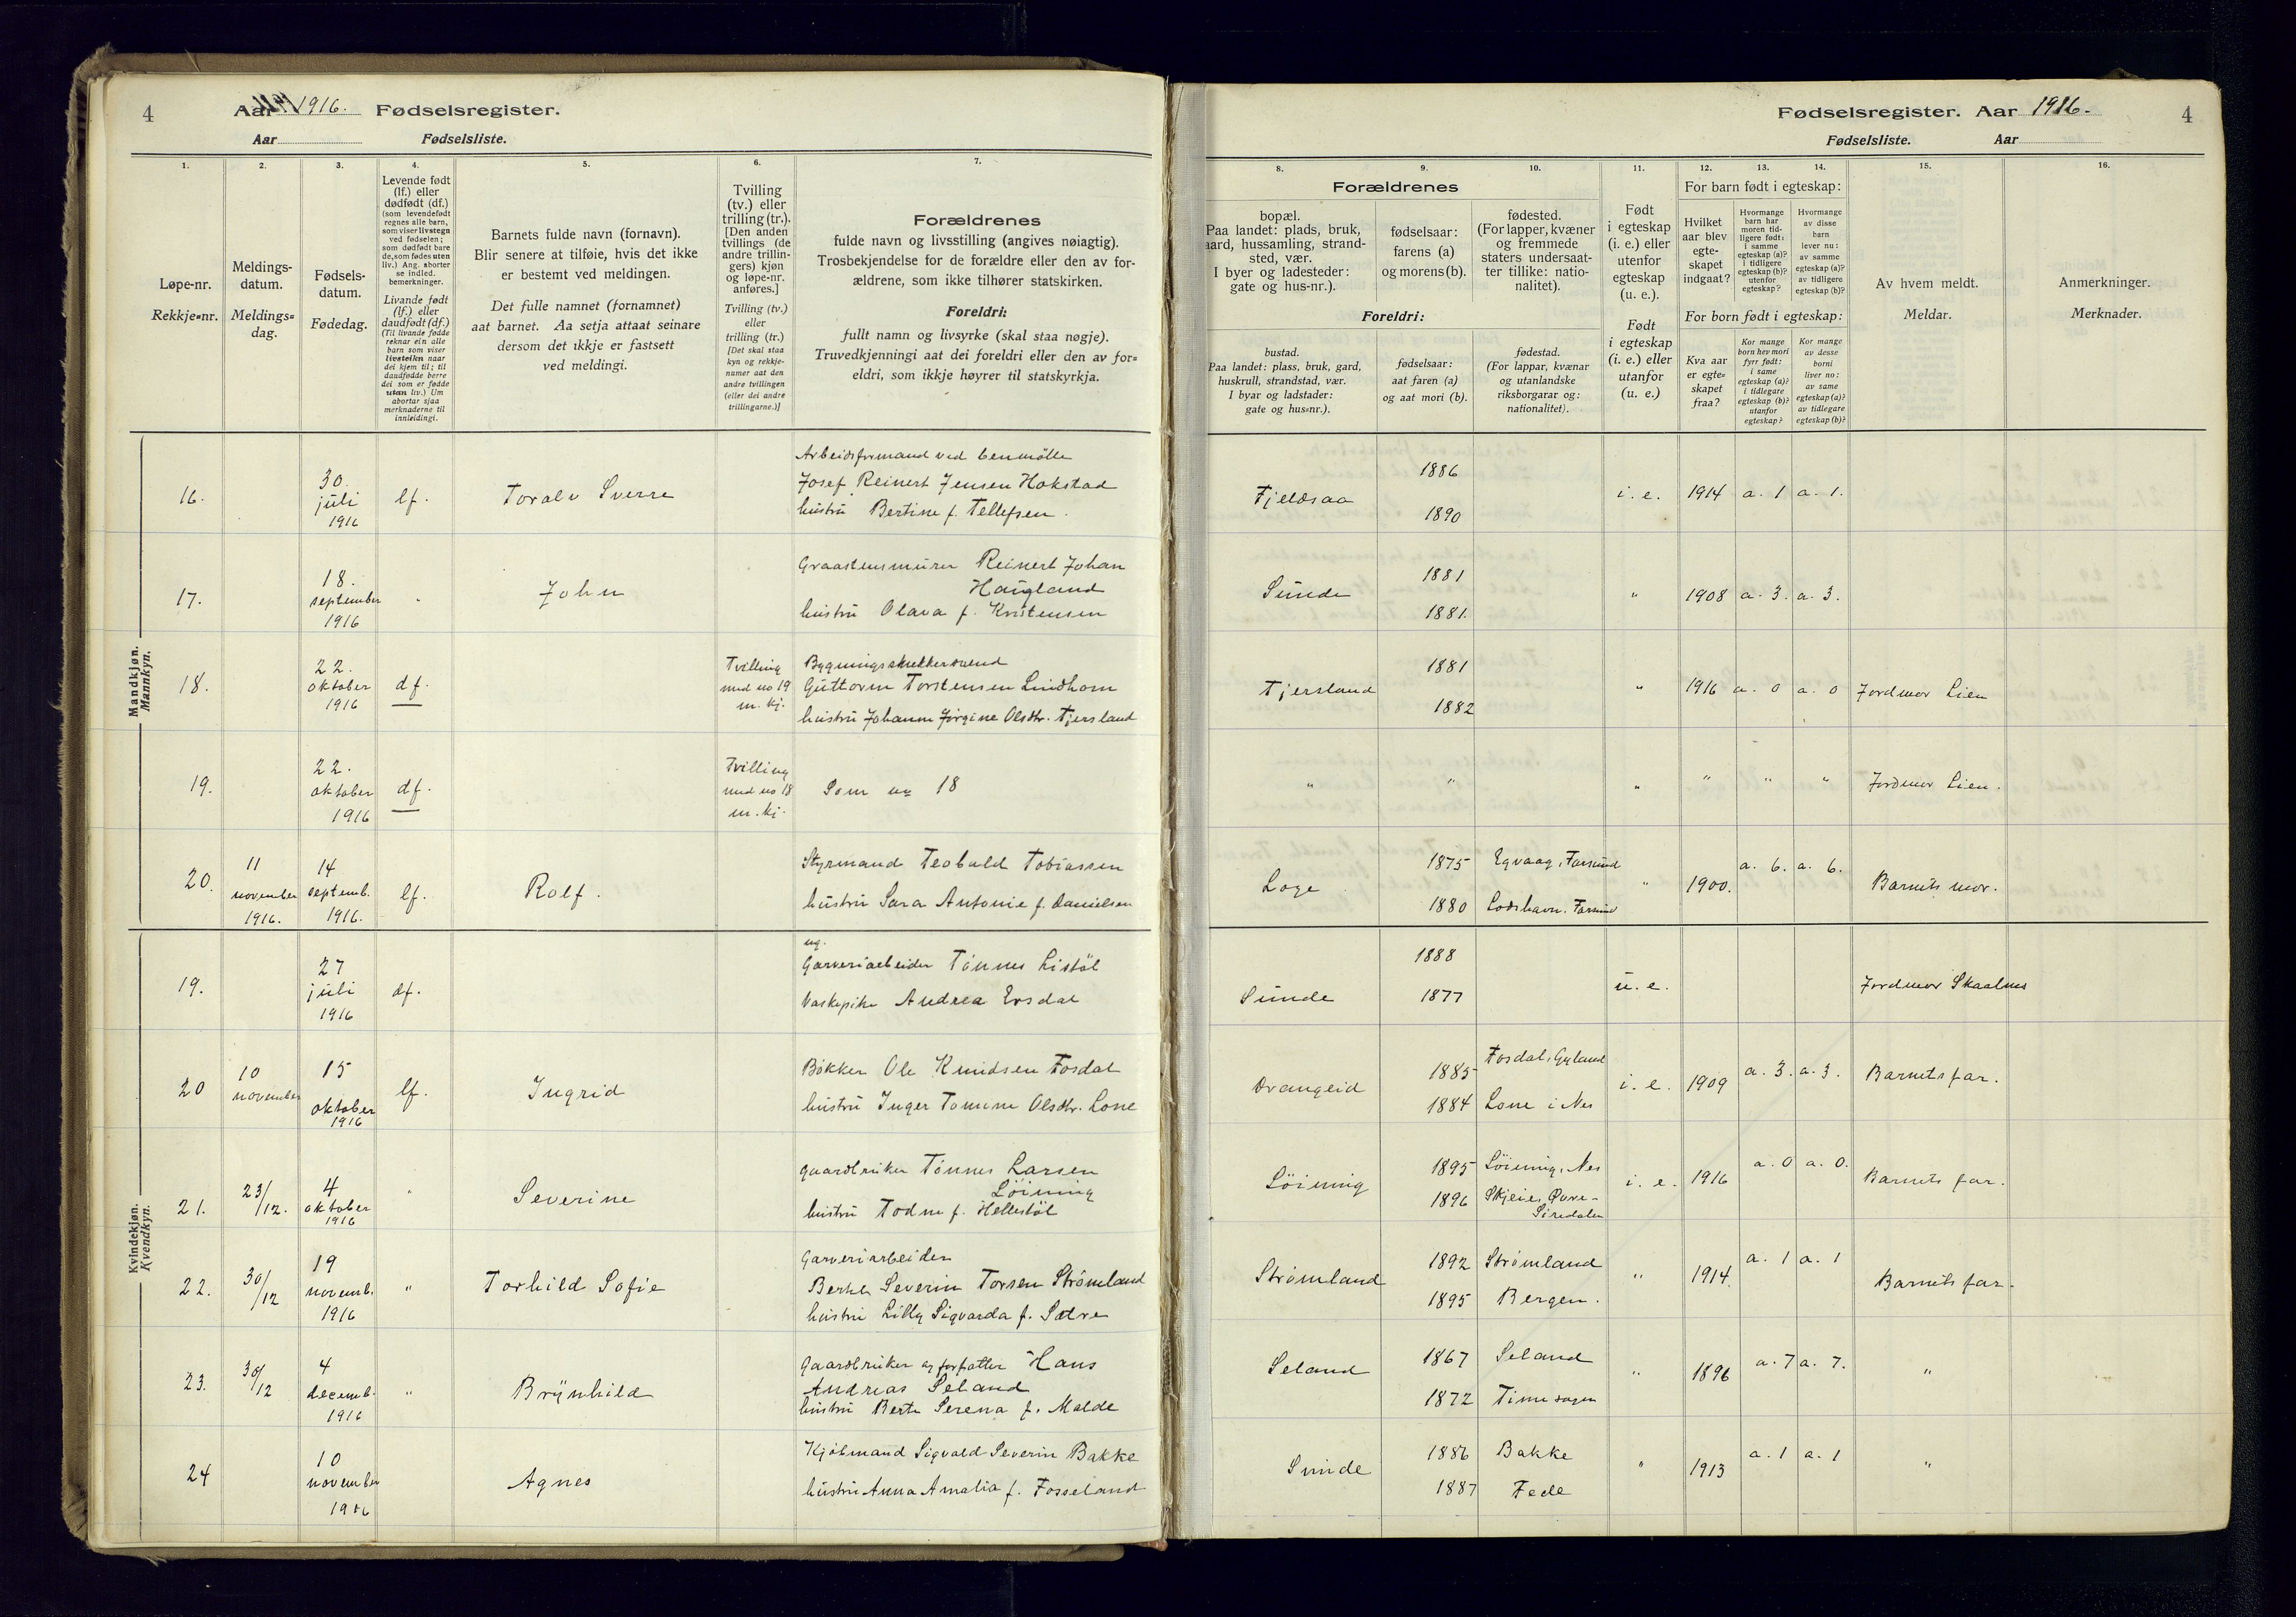 4
Aar 1916. Fødselsregister.
Aar Fødselsliste.
1.
2.
3.
4.
5.
6.
7.
Løpe-nr.
Rekkje=nr.
Meldings-
datum.
Meldings=
dag.
Fødsels-
datum.
Fødedag.
Levende født
(lf.) eller
dødfødt (df.)
(som levendefødt
regnes alle barn,
som viser livstegn
ved fødselen;
som dødfødt bare
de, som fødes uten
liv.) Ang. aborter
se indled.
bemerkninger.
Livande født
(lf.) eller
daudfødt (df.)
(Til livande fødde
reknar ein alle
barn som viser
livsteikn naar
dei kjem til; til
daudfødde berre
dei som er fødde
utan liv.) Um
abortar sjaa
merknaderne til
innleidingi.
Barnets fulde navn (fornavn).
Blir senere at tilføie, hvis det ikke
er bestemt ved meldingen.
Det fulle namnet (fornamnet)
aat barnet. Aa setja attaat seinare
dersom det ikkje er fastsett
ved meldingi.
Tvilling
(tv.) eller
trilling (tr.).
[Den anden
tvillings (de
andre trillin-
gers) kjøn
og løpe-nr.
anføres.]
Tvilling (tv.)
eller
trilling (tr.)
[Det skal staa
kyn og rekkje-
numer aat den
andre tvillingen
(eller dei andre
trillingarne.)]
Forældrenes
fulde navn og livsstilling (angives nøiagtig).
Trosbekjendelse for de forældre eller den av for-
ældrene, som ikke tilhører statskirken.
Foreldri:
fullt namn og livsyrke (skal staa nøgje).
Truvedkjenningi aat dei foreldri eller den av for=
eldri, som ikkje høyrer til statskyrkja.
Mandkjøn.
Mannkyn.
16.
30.
juli
1916
lf.
Toralv Sverre
Arbeidsformand ved benmølle
Josef Reinert Jensen Hokstad
hustru Bertine f. Tellefsen.
17.
18.
september
1916
"
John
Graastensmurer Reinert Johan
Haugland
hustru Olava f. Kristensen
18.
22.
oktober
1916
df.
Tvilling
med no 19
m. kj.
Bygningssnekkersvend
Guttorm Torstensen Lindhom
hustru Johanne Jørgine Olsdtr. Tjersland
19.
22.
oktober
1916
df.
Tvilling
med no 18
m. kj.
Som no 18
20.
11
november
1916.
14
septemb.
1916.
lf.
Rolf.
Styrmand Teobald Tobiassen
hustru Sara Antonie f. Danielsen
Kvindekjøn.
Kvendkyn.
19.
27
juli
1916
df.
ug.
Garveriarbeider Tönnes Listöl
Vaskepike Andrea Ersdal
20
10
november
15
oktober
1916
lf.
Ingrid
Bökker Ole Knudsen Fosdal
hustru Inger Tomine Olsdtr. Lone
21.
23/12.
4
oktober
1916
"
Severine
gaardbruker Tönnes Larsen
Löining
hustru Todne f. Hellestöl
22.
30/12
19
novemb.
1916
"
Torhild Sofie
Garveriarbeider
Bertel Severin Torsen Strömland
hustru Lilly Sigvarda f. Sætre
23.
30/12
4
decemb.
1916
"
Brynhild
Gaardbruker og forfatter Hans
Andreas Seland
hustru Berte Serena f. Malde
24
10
november
1916
Agnes
Kjöbmand Sigvald Severin Bakke
hustru Anna Amalia f. Fosseland
Fødselsregister. Aar 1916.
4
Fødselsliste. Aar
8.
9.
10.
11.
12.
13.
14.
15.
16.
Forældrenes
bopæl.
Paa landet: plads, bruk,
aard, hussamling, strand-
sted, vær.
I byer og ladesteder:
gate og hus-nr.).
fødselsaar:
farens (a)
og morens (b).
fødested.
(For lapper, kvæner
og fremmede
staters undersaat-
ter tillike: natio-
nalitet).
Foreldri:
bustad.
Paa landet: plass, bruk, gard,
huskrull, strandstad, vær.
I byar og ladstader:
gate og hus=nr.).
fødselsaar:
aat faren (a)
og aat mori (b).
fødestad.
(For lappar, kvænar
og utanlandske
riksborgarar og:
nationalitet).
Født
i egteskap
(i. e.) eller
utenfor
egteskap
(u. e.).
Født
i egteskap
(i. e.) eller
utanfor
(u. e.)
For barn født i egteskap:
Hvilket
aar blev
egte-
skapet
indgaat?
Hvormange
barn har
moren tid-
ligere født:
i samme
egteskap (a)?
i tidligere
egteskap (b)?
utenfor
egteskap?
Hvormange
av disse
barn
lever nu:
av samme
egteskap (a)?
av tidligere
egteskap (b)?
For born født i egteskap:
Kva aar
er egte=
skapet
fraa?
Kor mange
born hev mori
fyrr født:
i same
egteskap (a)?
i tidlegare
egteskap (b)?
utanfor
egteskap?
Kor mange
av desse
borni
liver no:
av same
egteskap (a)?
av tidlegare
egteskap (b)?
Av hvem meldt.
Meldar.
Anmerkninger.
Merknader.
Fjeldsaa
1886
1890
i. e.
1914
a. 1
a. 1.
Sunde
1881
1881.
"
1908
a. 3.
a. 3.
Tjersland
1881
1882
"
1916
a. 0
a. 0
Jordmor Lien
"
"
"
"
"
"
Jordmor Lien.
Loge
1875
1880
Egvaag, Farsund
Loshavn. Farsund
"
1900.
a. 6.
a. 6.
Barnets mor.
Sunde
1888
1877
u. e.
Jordmor Skaalnes
Drangeid
1885
1884
Fosdal, Gyland
Lone i Nes
i. e.
1909
a. 3.
a. 3.
Barnets far.
Löining
1895
1896
Löining, Nes
Skjeie, Øvre-
Siredalen
i. e.
1916
a. 0
a. 0.
Barnets far.
Strömland
1892
1895
Strömland
Bergen.
"
1914.
a. 1
a. 1
Barnets far.
Seland
1867
1872
Seland
Time sogn
"
1896
a. 7
a. 7.
"
Sunde
1886
1887
Bakke
Fede
"
1913
a. 1
a. 1
"